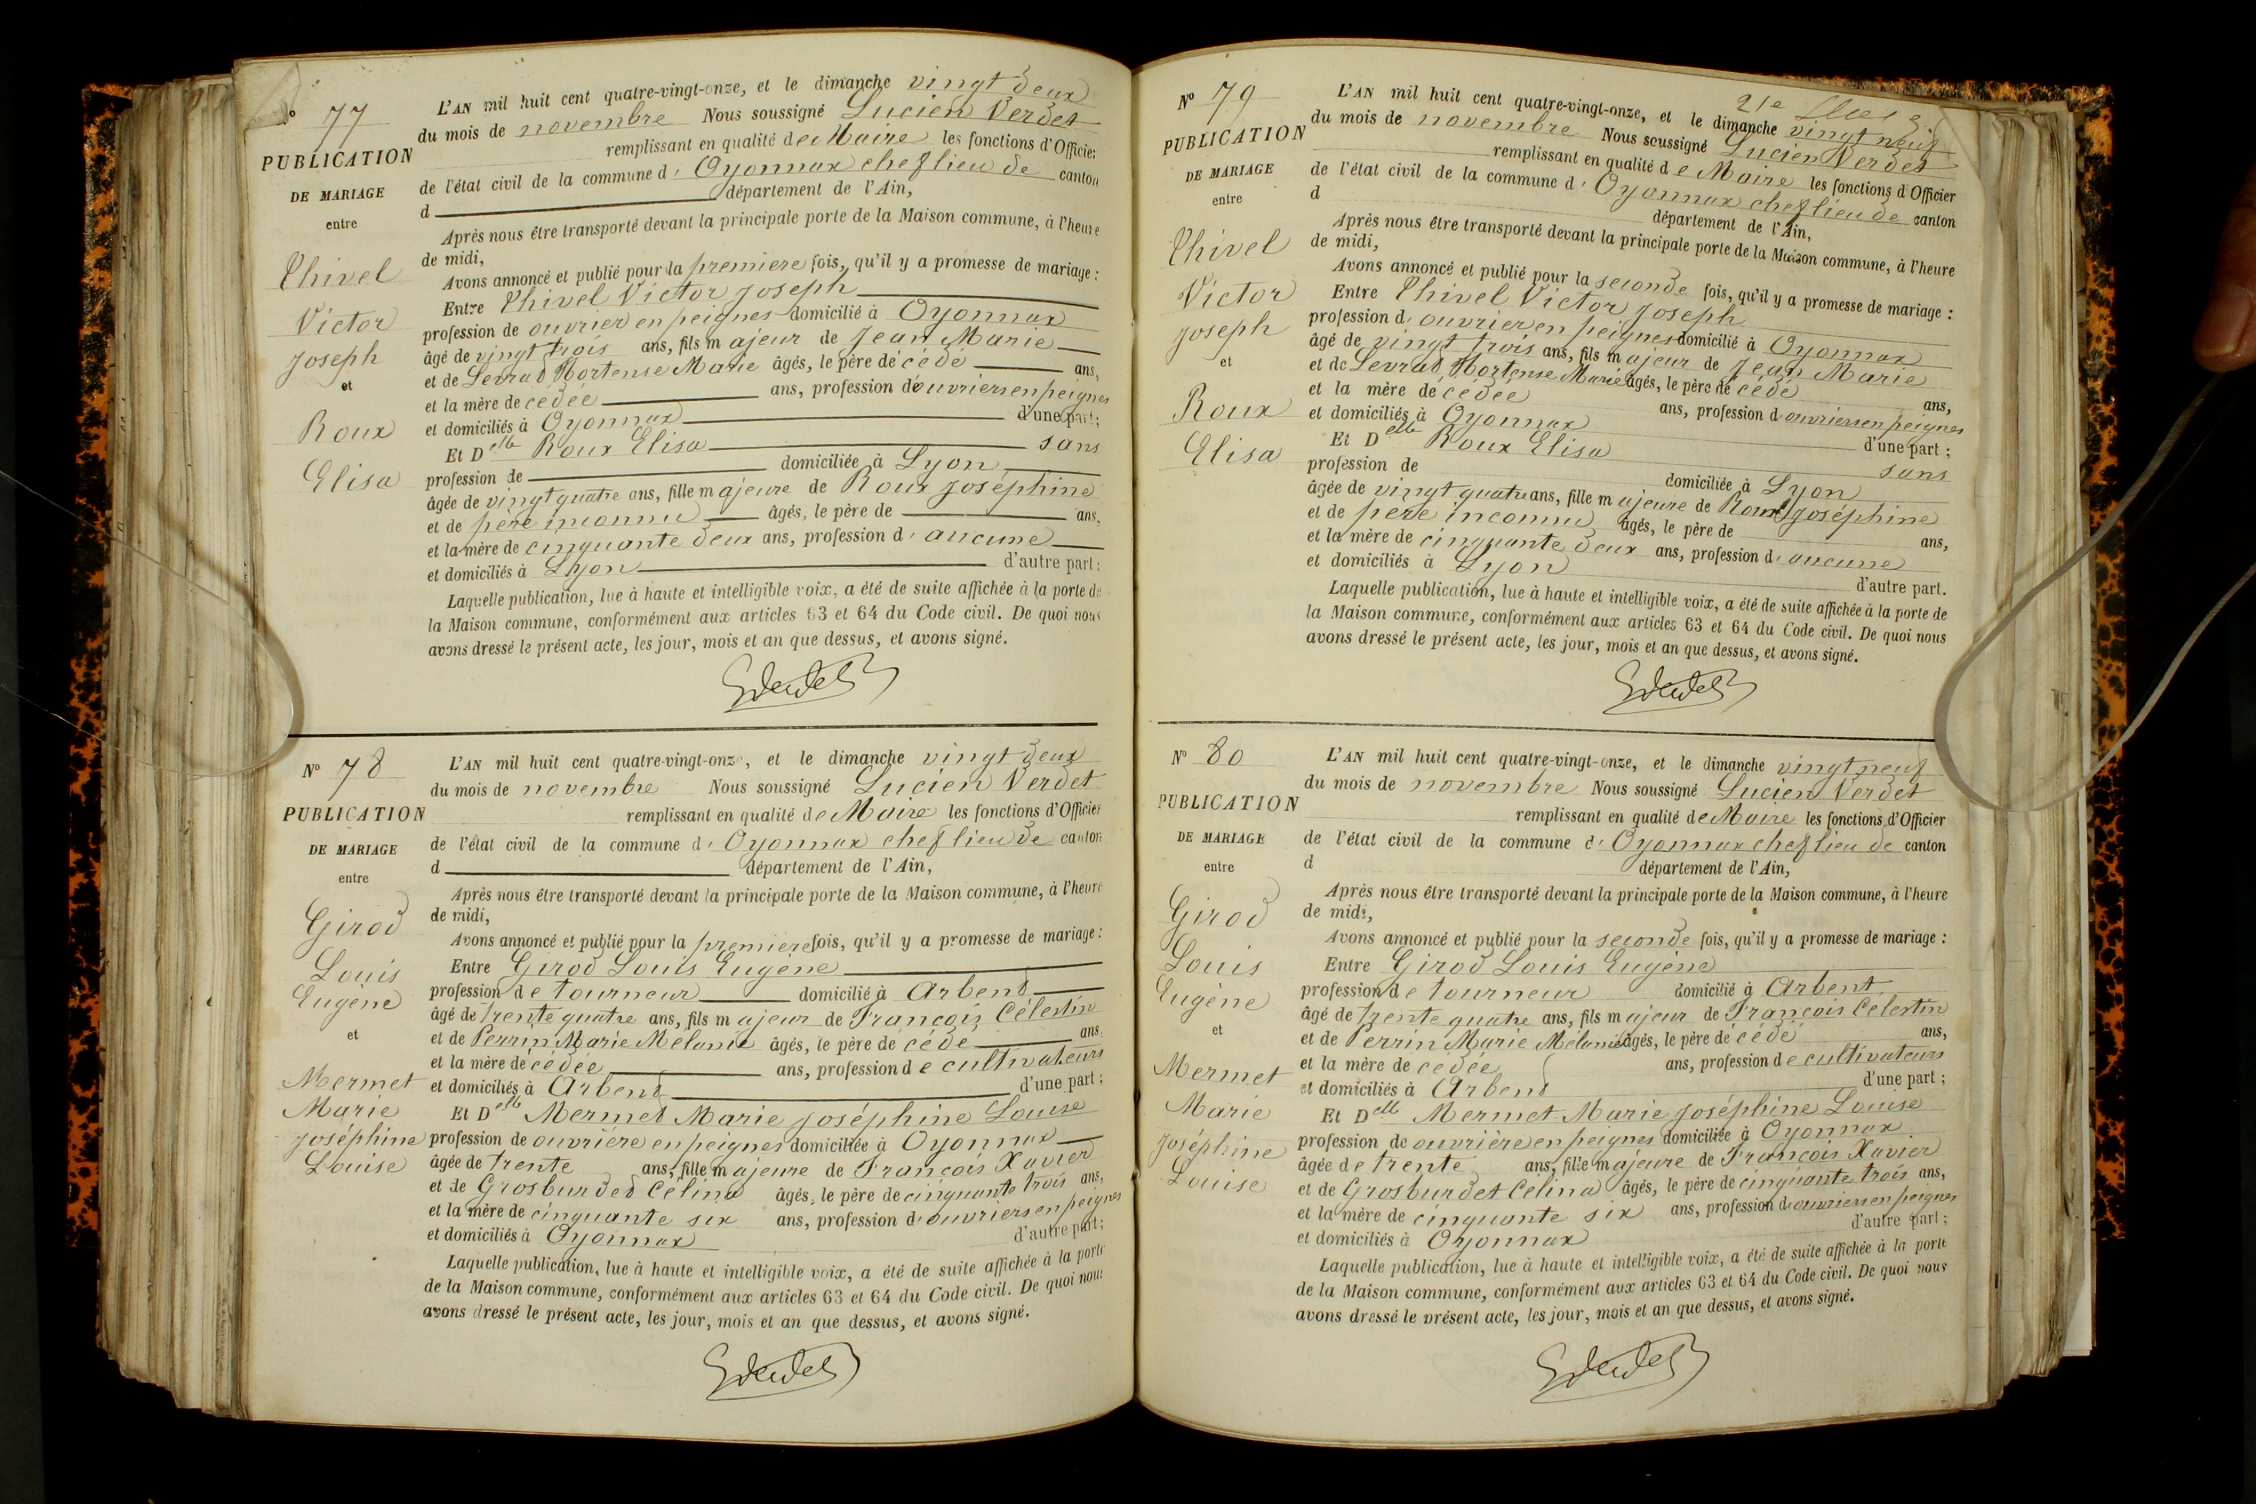 No 77
PUBLICATION
DE MARIAGE
entre
Thivel
Victor
Joseph
et
Roux
Elisa
L'AN mil huit cent quatre-vingt-onze, et le dimanche vingt deux
du mois de novembre Nous soussigné Lucien Verdet
remplissant en qualité de Maire les fonctions d'Officier
de l'état civil de la commune d' Oyonnax chef lieu de canton
d département de l'Ain,
Après nous être transporté devant la principale porte de la Maison commune, à l'heure
de midi,
Avons annoncé et publié pour la premiere fois, qu'il y a promesse de mariage :
Entre Thivel Victor Joseph
profession de ouvrier en peignes domicilié à Oyonnax
âgé de vingt trois ans, fils majeur de Jean Marie
et de Levrad Hortense Marie âgés, le père décédé ans,
et la mère décédée ans, profession d'ouvriers en peignes
et domiciliés à Oyonnax d'une part ;
Et Delle Roux Elisa sans
profession de domiciliée à Lyon
âgée de vingt quatre ans, fille majeure de Roux Joséphine
et de père inconnu âgés, le père de ans,
et la mère de cinquante deux ans, profession d' aucune
et domiciliés à Lyon d'autre part :
Laquelle publication, lue à haute et intelligible voix, a été de suite affichée à la porte de
la Maison commune, conformément aux articles 63 et 64 du Code civil. De quoi nous
avons dressé le présent acte, les jour, mois et an que dessus, et avons signé.
No 78
PUBLICATION
DE MARIAGE
entre
Girod
Louis
Eugène
et
Mermet
Marie
Joséphine
Louise
L'AN mil huit cent quatre-vingt-onze, et le dimanche vingt deux
du mois de novembre Nous soussigné Lucien Verdet
remplissant en qualité de Maire les fonctions d'Officier
de l'état civil de la commune d' Oyonnax chef lieu de canton
d département de l'Ain,
Après nous être transporté devant la principale porte de la Maison commune, à l'heure
de midi,
Avons annoncé et publié pour la premiere fois, qu'il y a promesse de mariage :
Entre Girod Louis Eugène
profession de tourneur domicilié à Arbent
âgé de trente quatre ans, fils majeur de François Célestin
et de Perrin Marie Mélanie âgés, le père décédé ans.
et la mère décédée ans, profession de cultivateurs
et domiciliés à Arbent d'une part ;
Et Delle Mermet Marie Joséphine Louise
profession de ouvrière en peignes domiciliée à Oyonnax
âgée de trente ans, fille majeure de François Xavier
et de Grosburdet Célina âgés, le père de cinquante trois ans,
et la mère de cinquante six ans, profession d'ouvriers en peignes
et domiciliés à Oyonnax d'autre part ;
Laquelle publication, lue à haute et intelligible voix, a été de suite affichée à la porte
de la Maison commune, conformément aux articles 63 et 64 du Code civil. De quoi nous
avons dressé le présent acte, les jour, mois et an que dessus, et avons signé.
21e
No 79
PUBLICATION
DE MARIAGE
entre
Thivel
Victor
Joseph
et
Roux
Elisa
L'AN mil huit cent quatre-vingt-onze, et le dimanche vingt neuf
du mois de novembre Nous soussigné Lucien Verdet
remplissant en qualité de Maire les fonctions d'Officier
de l'état civil de la commune d' Oyonnax chef lieu de canton
d département de l'Ain,
Après nous être transporté devant la principale porte de la Maison commune, à l'heure
de midi,
Avons annoncé et publié pour la seconde fois, qu'il y a promesse de mariage :
Entre Thivel Victor Joseph
profession d' ouvrier en peignes domicilié à Oyonnax
âgé de vingt trois ans, fils majeur de Jean Marie
et de Levrad Hortense Marie âgés, le père décédé ans,
et la mère décédée ans, profession d'ouvriers en peignes
et domiciliés à Oyonnax d'une part ;
Et Delle Roux Elisa sans
profession de domiciliée à Lyon
âgée de vingt quatre ans, fille majeure de Roux Joséphine
et de père inconnu âgés, le père de ans,
et la mère de cinquante deux ans, profession d' aucune
et domiciliés à Lyon d'autre part.
Laquelle publication, lue à haute et intelligible voix, a été de suite affichée à la porte de
la Maison commune, conformément aux articles 63 et 64 du Code civil. De quoi nous
avons dressé le présent acte, les jour, mois et an que dessus, et avons signé.
No 80
PUBLICATION
DE MARIAGE
entre
Girod
Louis
Eugène
et
Mermet
Marie
Joséphine
Louise
L'AN mil huit cent quatre-vingt-onze, et le dimanche vingt neuf
du mois de novembre Nous soussigné Lucien Verdet
remplissant en qualité de Maire les fonctions d'Officier
de l'état civil de la commune d' Oyonnax chef lieu de canton
d département de l'Ain,
Après nous être transporté devant la principale porte de la Maison commune, à l'heure
de midi,
Avons annoncé et publié pour la seconde fois, qu'il y a promesse de mariage :
Entre Girod Louis Eugène
profession de tourneur domicilié à Arbent
âgé de trente quatre ans, fils majeur de François Célestin
et de Perrin Marie Mélanie âgés, le père décédé ans,
et la mère décédée ans, profession de cultivateurs
et domiciliés à Arbent d'une part ;
Et Delle Mermet Marie Joséphine Louise
profession de ouvrière en peignes domiciliée à Oyonnax
âgée de trente ans, fille majeure de François Xavier
et de Grosburdet Célina âgés, le père de cinquante trois ans,
et la mère de cinquante six ans, profession d'ouvriers en peignes
et domiciliés à Oyonnax d'autre part ;
Laquelle publication, lue à haute et intelligible voix, a été de suite affichée à la porte
de la Maison commune, conformément aux articles 63 et 64 du Code civil. De quoi nous
avons dressé le présent acte, les jour, mois et an que dessus, et avons signé.